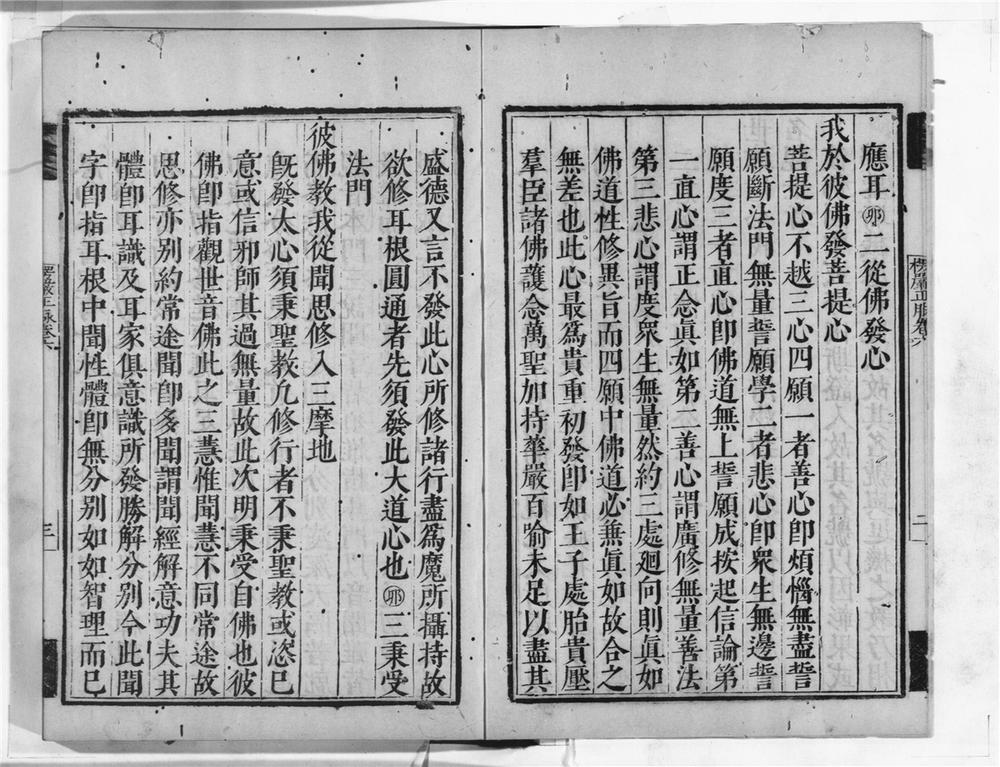 應耳㊞二從佛發心
我於彼佛發菩提心
菩提心不越三心四願一者善心卽煩惱無盡誓
願斷法門無量誓願學二者悲心卽衆生無邊誓
願度三者直心卽佛道無上誓願成按起信論第
一直心謂正念眞如第二善心謂廣修無量善法
第三悲心謂度衆生無量然約三處廻向則眞如
佛道性修異旨而四願中佛道必兼眞如故合之
無差也此心最爲貴重初發卽如王子處胎貴壓
羣臣諸佛護念萬聖加持華嚴百喻未足以盡其
楞嚴正脉卷六
二
盛德又言不發此心所修諸行盡爲魔所攝持故
欲修耳根圓通者先須發此大道心也㊞三秉受
法門
彼佛教我從聞思修入三摩地
旣發大心須秉聖教凢修行者不秉聖教或恣巳
意或信邪師其過無量故此次明秉受自佛也彼
佛卽指觀世音佛此之三慧惟聞慧不同常途故
思修亦别約常途聞卽多聞謂聞經解意功夫其
體卽耳識及耳家俱意識所發勝解分别今此聞
字卽指耳根中聞性體卽無分别如如智理而巳
楞嚴正脉卷六
三